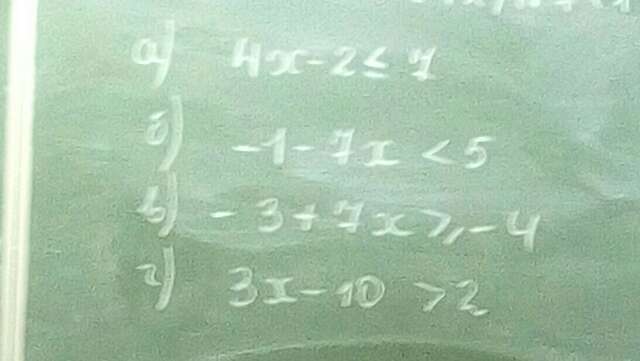 а) 4x-2≤7
б) -1-7x<5
в) -3+7x⩾-4
г) 3x-10>2